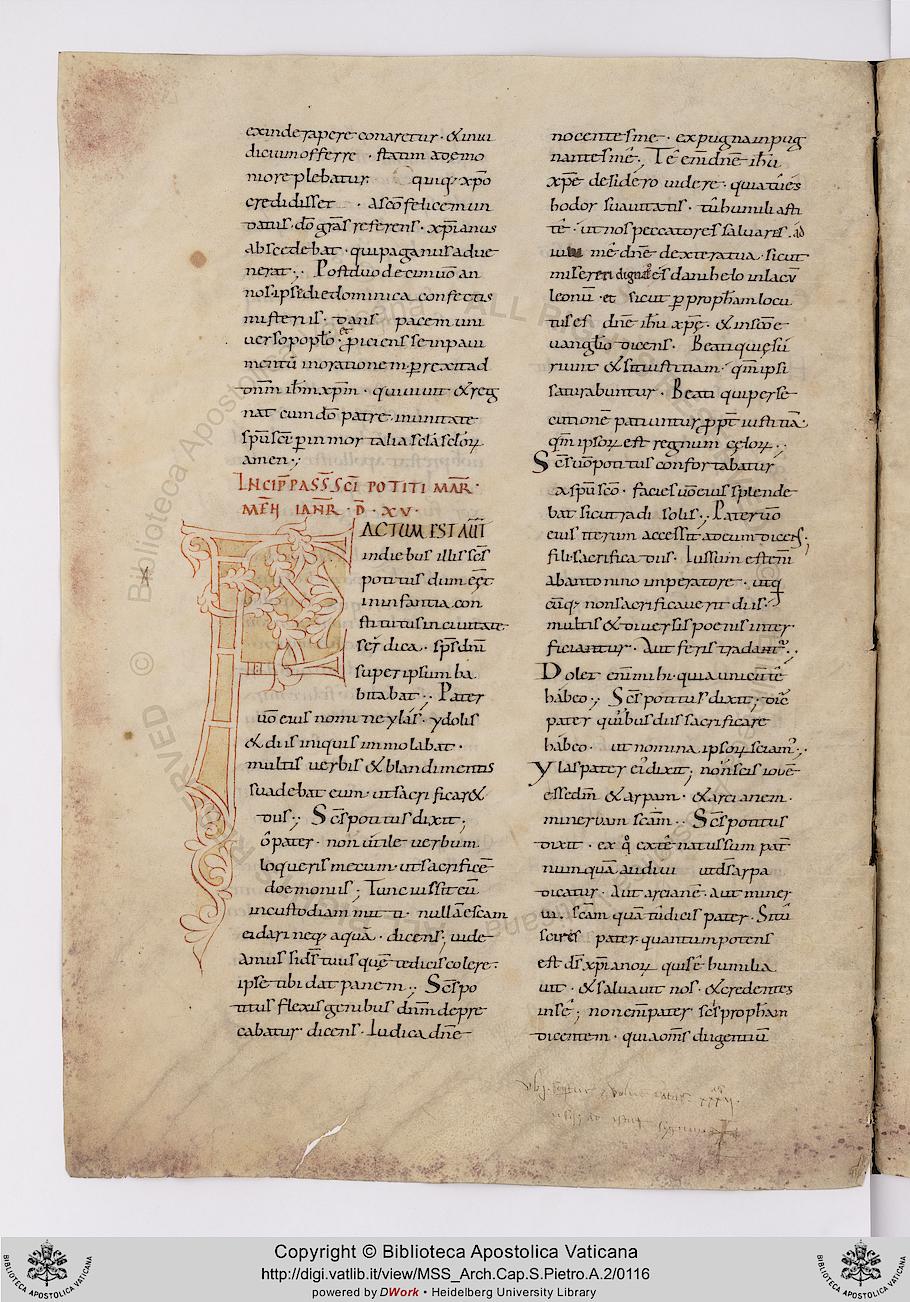 exinde rapere conaretur · & inui
dicum offerre · statim a dẹmo
nio replebatur. quiq; xp̄o
credidisset · a scō felice mun
datus · dō grās referens · xpianus
abscedebat · qui paganus adue
nerat ·,· Post duodecim uō an
nos ipse die dominica confectis
misteriis · dans pacem uni
verso poplo · et ꝓiciens se in paui
mentū in oratione · perrexit ad
dnm ihm xpm · qui uiuit & reg
nat cum dō patre · in unitate
spū sci per inmortalia sclā sclōꝝ
amen ·,·
INCIP PASS SCI POTITI MAR·
MEN̄ IANR̄ · D̄ · XV ·
FACTUM EST AUT̄
in diebus illis scs̄
potitus dum ēēt
in infantia con
stitutus in civitate
serdica · sps̄ dni
super ipsum ha
bitabat ·,· Pater
uō eius nomine ylas · ydolis
& diis iniquis immolabat ·
multis uerbis & blandimentis
suadebat eum · ut sacrificar&
diis ·,· Scs̄ potitus dixit ;
ô pater · non utile uerbum
loqueris mecum · ut sacrificē
dẹmoniis ; Tunc iussit eū
in custodiam mitti · nullā escam
ei dari neq; aquā · dicens ; uide
amus si ds̄ tuus quē te dicis colere ·
ipse tibi dat panem ·,· Scs̄ po
titus flexis genibus dnm depre
cabatur dicens · Iudica dnē
nocentes me · expugna inpug
nantes mē ·, Tē enī dnē ihu
xpē desidero uidere · quia tu ēs
hodor suauitatis · tū humiliasti
tē · ut nos peccatores saluares · ad
iuua mē dnē dextera tua · sicut
misereri dignatꝰ es danihelo in lacū
leonū · et sicut per prophām locu
tus es dnē ihu xpē · & in scō e
uanglio dicens · Beati qui esu
riunt & sitiunt iustitiam · qm̄ ipsi
saturabuntur · Beati qui perse
cutionē patiuntur ꝓpt̄ iustitiā ·
qm̄ ipsoꝝ est regnum cẹloꝝ ·,·
Scs̄ uō potitus confortabatur
a spū scō · facies uō eius splende
bat sicut radi solis ·,· Pater uō
eius iterum accessit ad eum dicens ;
fili sacrifica diis · Iussum est enī
ab antonino imperatore · ut q
cūq; non sacrificauerit diis ·
multis & diuersis poenis inter
ficiantur · Aut feris tradantꝰ ·,·
Dolet enim mihi · quia unicū tē
habeo ·,· Scs̄ potitus dixit ; dic
pater quibus diis sacrificare
habeo · ut nomina ipsoꝝ sciam ·,·
Ylas pater ei dixit ; non scis iouē
esse dm̄ & arpam · & arcianem ·
mineruam scām ·· Scs̄ potitus
dixit · ex q̊ extē natus sum pat̄
numquā audiui ut ds̄ arpa
dicatur · Aut arcianē · aut miner
ua · scām quā tu dicis pater · Si tū
scires pater · quantum potens
est ds̄ xpianoꝝ qui sē humilia
uit · & saluauit nos · & credentes
in sē ; non enī pater scis prophām
dicentem · quia oms̄ dii gentiū
Copyright © Biblioteca Apostolica Vaticana
http://digi.vatlib.it/view/MSS_Arch.Cap.S.Pietro.A.2/0116
powered by DWork • Heidelberg University Library